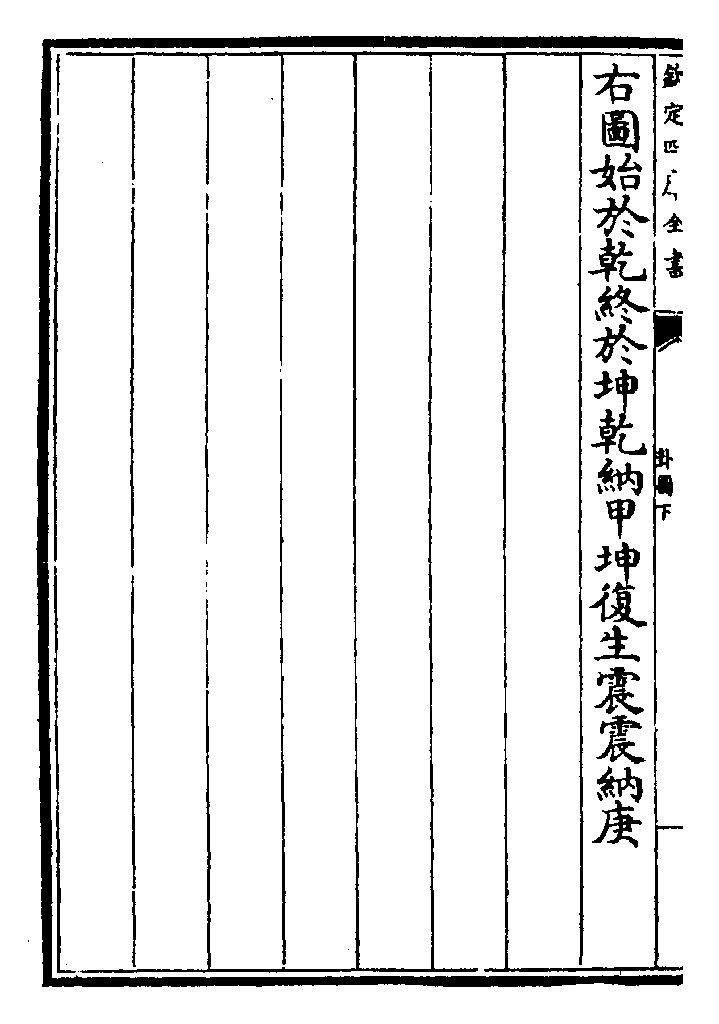 欽定四庫全書
卦圖下
右圖始於乾終於坤乾納甲坤復生震震納庚